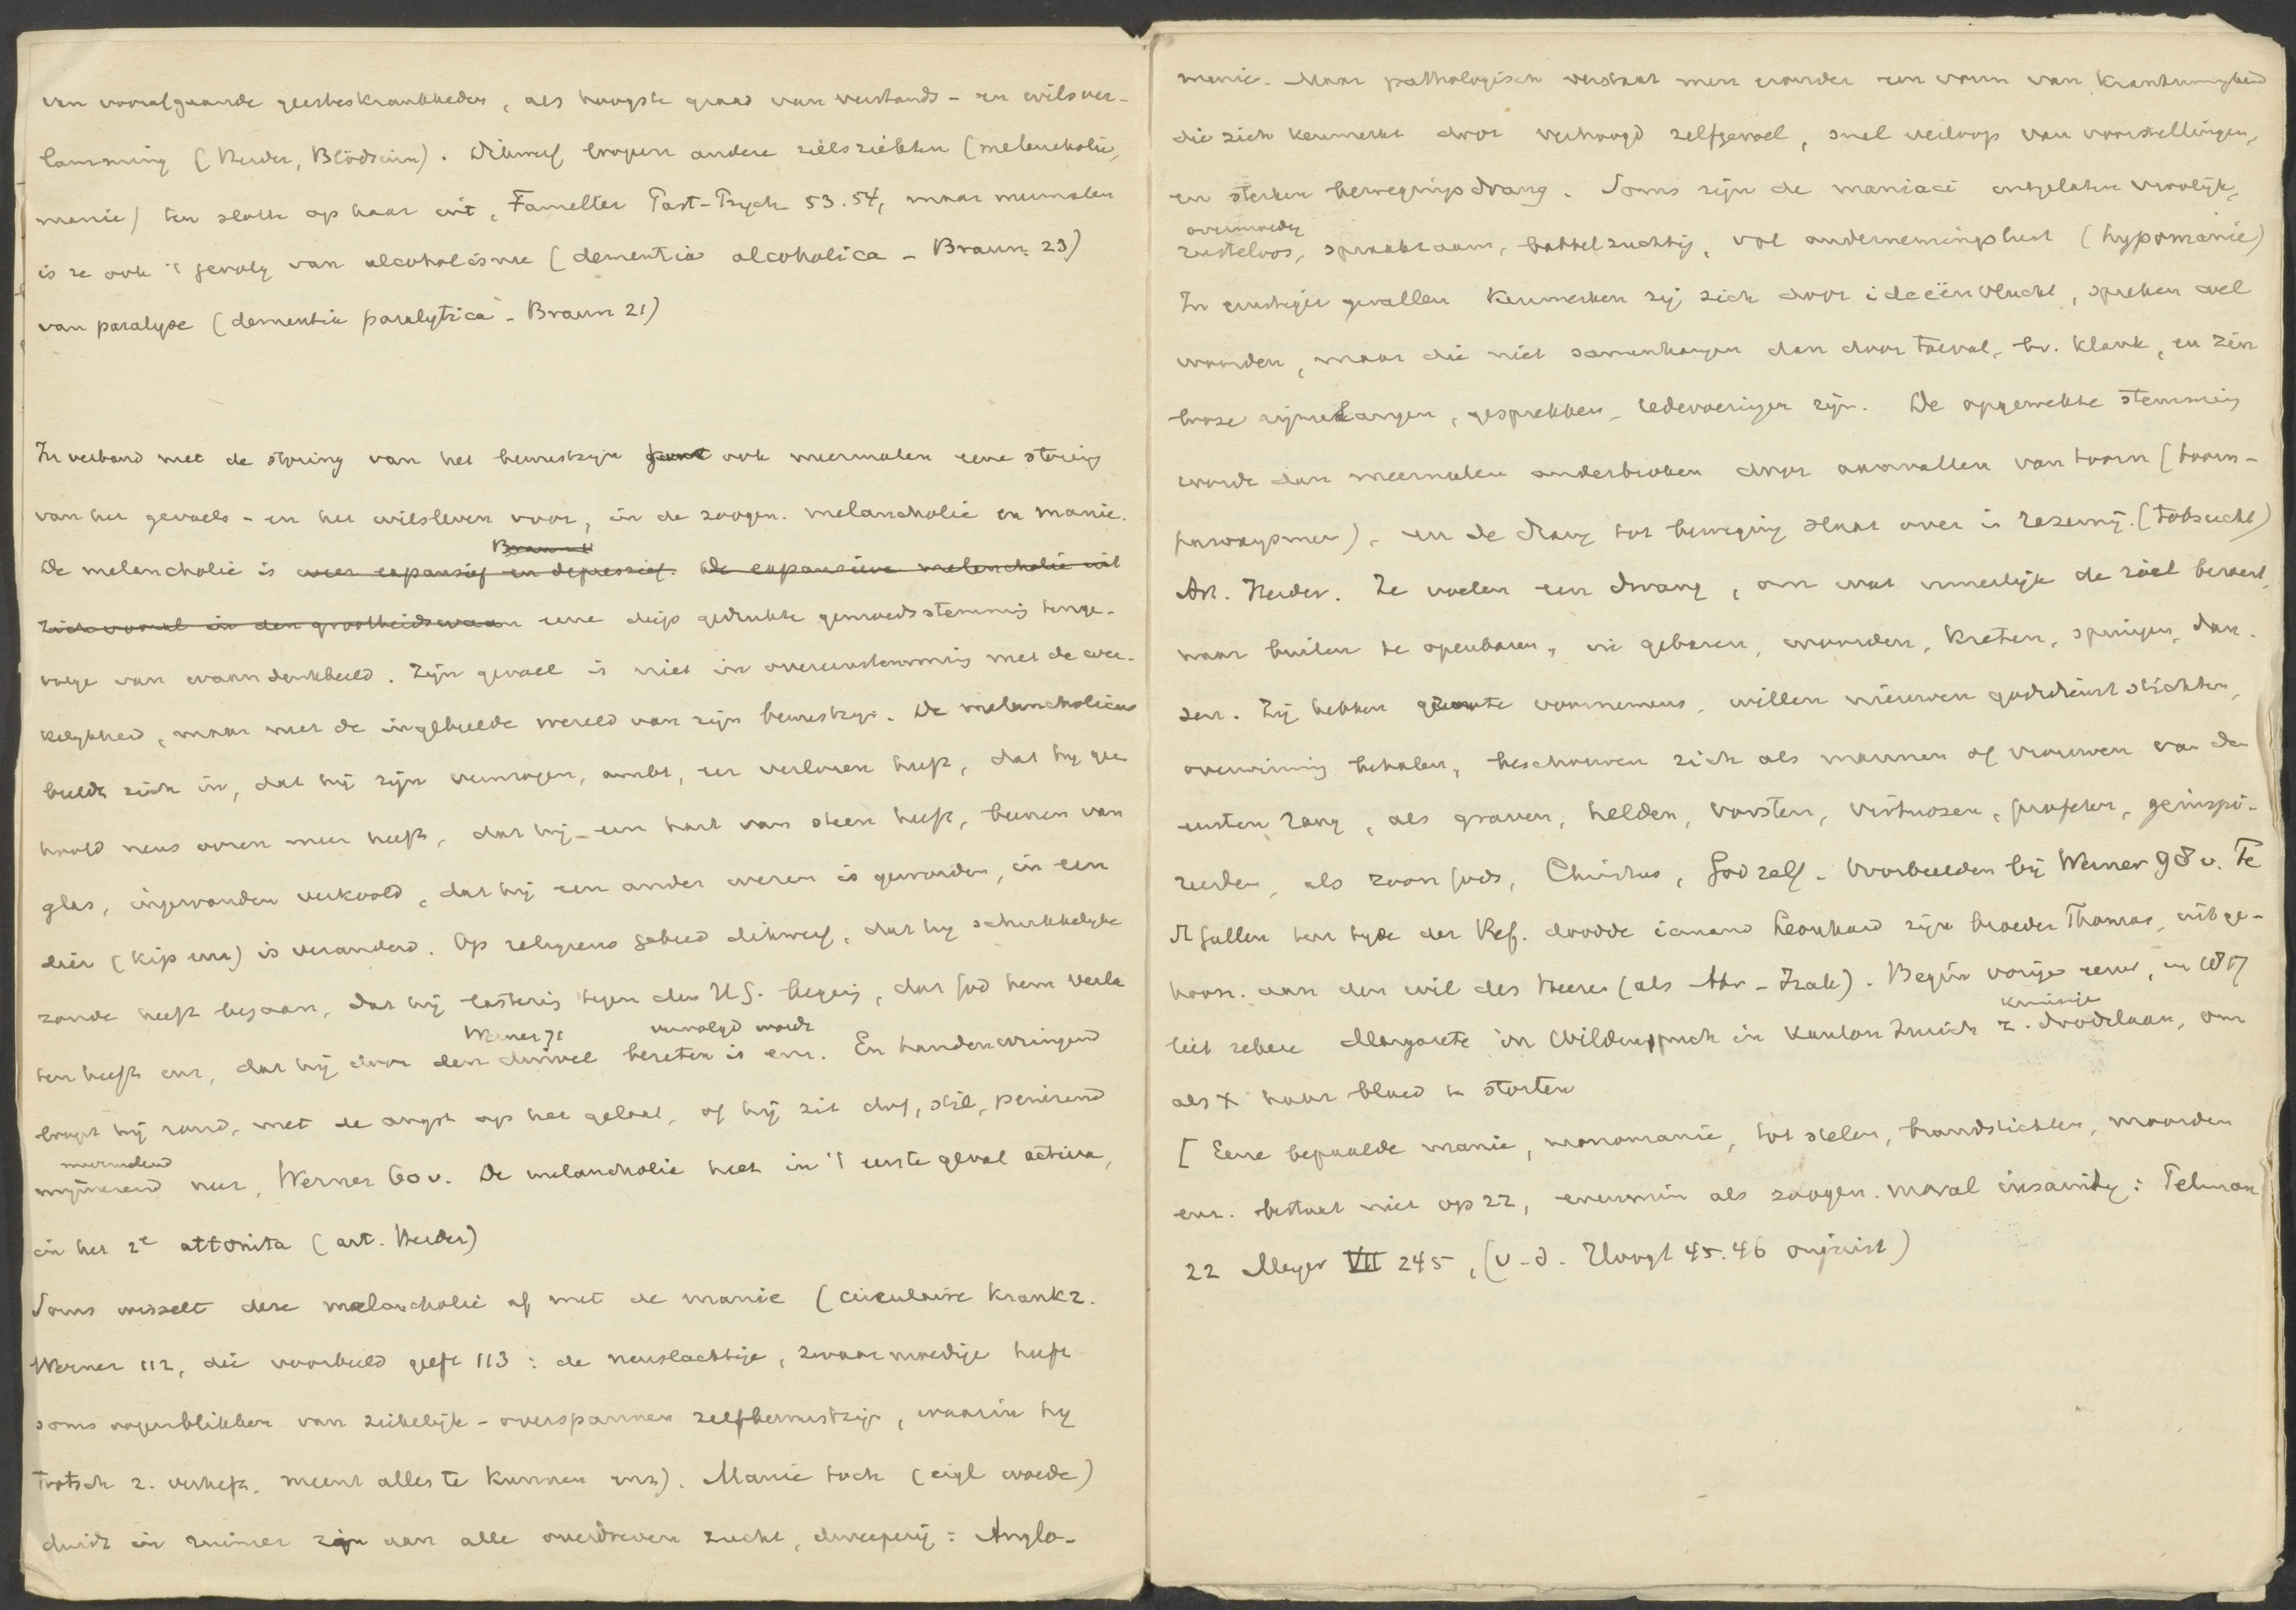 van voorafgaande geesteskrankheden, als hoogste graad van verstands- en wilsver-
lamming (Herder, Blödsinn). Dikwijls loopen andere zielsziekten (melancholie,
manie) ten slotte op haar uit, Famelter Past-Psych 53.54, maar meermalen
is ze ook 't gevolg van alcoholisme (dementia alcoholica - Braun 23)
van paralyse (dementia paralytica - Braun 21)
In verband met de storing van het bewustzijn komt ook meermalen eene storing
van het gevoels- en het wilsleven voor, in de zoogen. melancholie en manie.
Braun
De melancholie is weer expansief en depressief. De expansieve melancholie uit
zich vooral in den grootheidswaan eene diep gedrukte gemoedsstemming tenge-
volge van waandenkbeeld. Zijn gevoel is niet in overeenstemming met de wer-
kelijkheid, maar met de ingebeelde wereld van zijn bewustzijn. De melancholicus
beeldt zich in, dat hij zijn vermogen, ambt, eer verloren heeft, dat hij gee
hoofd neus ooren meer heeft, dat hij een hart van steen heeft, beenen van
glas, ingewanden verkoold, dat hij een ander wezen is geworden, in een
dier (kip enz) is veranderd. Op religieus gebied dikwerf, dat hij schrikkelijke
zonde heeft begaan, dat hij lastering tegen den H.G. beging, dat God hem verla
Werner 71 vervolgd wordt
ten heeft enz, dat hij door den duivel bezeten is enz. En handenwringend
loopt hij rond, met de angst op het gelaat, of hij zit dof, stil, peinzend
mijmerend neer, Werner 60 v. De melancholie heet in 't eerste geval activa,
in het 2e attonita (art. Herder)
Soms wisselt deze melancholie af met de manie (circulaire krankz.
Werner 112, die voorbeeld geeft 113: de neerslachtige, zwaarmoedige heeft
soms oogenblikken van ziekelijk-overspannen zelfbewustzijn, waarin hij
trotsch z. verheft, meent alles te kunnen enz). Manie toch (eigl woede)
duidt in ruimer zijn aan alle overdreven zucht, dweeperij: Anglo-
manie. Maar pathologisch verstaat men eronder een vorm van krankzinnigheid
die zich kenmerkt door verhoogd zelfgevoel, snel verloop van voorstellingen,
en sterken bewegingsdrang. Soms zijn de maniaci uitgelaten vroolijk,
overmoedig
rusteloos, spraakzaam, babbelzuchtig, vol ondernemingslust (hypomanie)
In ernstiger gevallen kenmerken zij zich door ideeënvlucht, spreken veel
woorden, maar die niet samenhangen dan door toeval, bv. klank, en zin
looze rijmelarijen, gesprekken, redevoeringen zijn. De opgewekte stemming
wordt dan meermalen onderbroken door aanvallen van toorn (toorn-
paroxysmen), en de drang tot beweging slaat over in razernij. (Tobsucht)
Art. Herder. Ze voelen een dwang, om wat innerlijk de ziel beroert,
naar buiten te openbaren, in gebaren, woorden, kreten, springen, dan-
sen. Zij hebben groote voornemens, willen nieuwen godsdienst stichten,
overwinning behalen, beschouwen zich als mannen of vrouwen van den
eersten rang, als graven, helden, vorsten, virtuozen, profeten, geïnspi-
reerden, als zoon Gods, Christus, God zelf. Voorbeelden bij Werner 98 v. Te
St Gallen ten tijde der Ref. doodde iemand Leonhard zijn broeder Thomas, uit ge-
hoorz. aan den wil des Heeren (als Abr-Izak). Begin vorige eeuw, in 1817
kruisige
liet zekere Margarete in Wildenspuch in kanton Zurich z. doodslaan, om
als X haar bloed te storten
[Eene bepaalde manie, monomanie, tot stelen, brandstichten, moorden
enz. bestaat niet op zz, evenmin als zoogen. moral insanity:
22 Meyer VII 245, (v.d. Hoogt 45.46 onjuist)